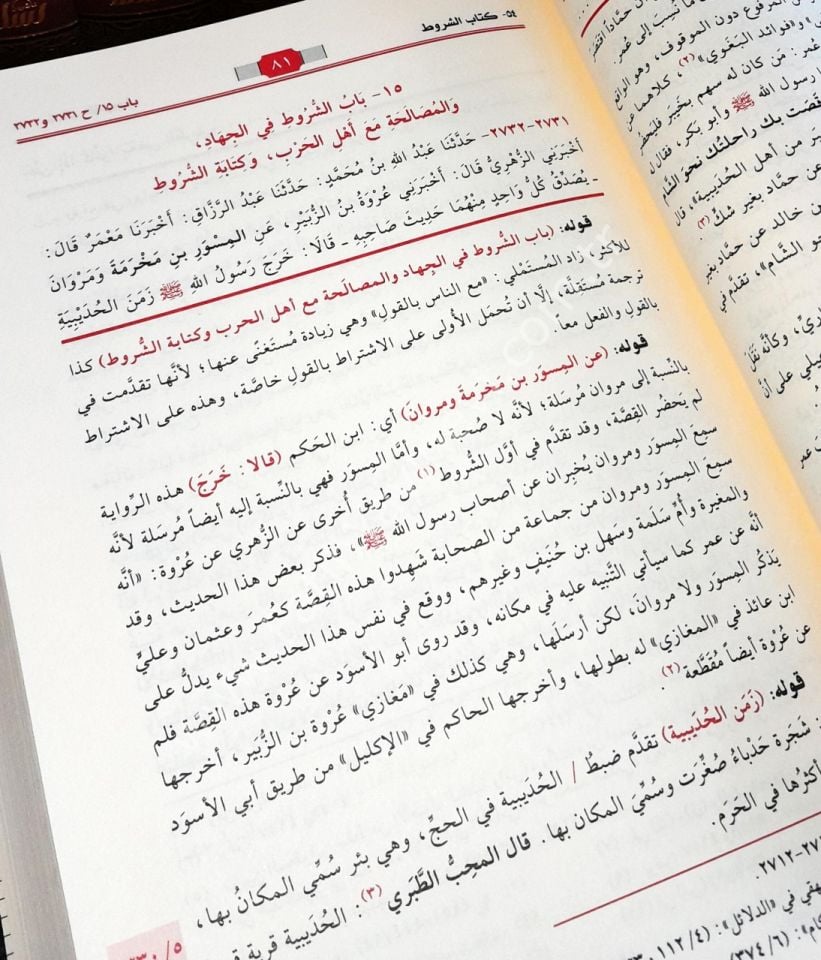 ٥٤- كتاب الشروط
٨١
باب ١٥/ ح ٢٧٣١ و٢٧٣٢
١٥- بَابُ الشُّرُوطِ فِي الجِهَادِ،
وَالمُصَالَحَةِ مَعَ أَهْلِ الحَرْبِ، وَكِتَابَةِ الشُّرُوطِ
٢٧٣١-٢٧٣٢- حَدَّثَنَا عَبْدُ اللهِ بنُ مُحَمَّدٍ: حَدَّثَنَا عَبْدُ الرَّزَّاقِ: أَخْبَرَنَا مَعْمَرٌ قَالَ:
أَخْبَرَنِي الزُّهْرِيُّ قَالَ: أَخْبَرَنِي عُرْوَةُ بنُ الزُّبَيْرِ، عَنِ المِسْوَرِ بنِ مَخْرَمَةَ وَمَرْوَانَ
ـ يُصَدِّقُ كُلُّ وَاحِدٍ مِنْهُمَا حَدِيثَ صَاحِبِهِ ـ قَالَا: خَرَجَ رَسُولُ اللهِ ﷺ زَمَنَ الحُدَيْبِيَةِ
قوله: (باب الشروط في الجهاد والمصالحة مع أهل الحرب وكتابة الشُّروط) كذا
للأكثر، زاد المُستَمْلي: «مع الناس بالقولِ» وهي زيادة مُستَغنًى عنها؛ لأنَّها تقدَّمت في
ترجمة مُستَقِلَّة، إلَّا أن تُحمَل الأُولى على الاشتراط بالقولِ خاصَّة، وهذه على الاشتراط
بالقولِ والفعل معاً.
قوله: (عن المِسوَر بن مَخرَمةَ ومروانَ) أي: ابن الحَكَم (قالا: خَرَجَ) هذه الرِّواية
بالنِّسبة إلى مروان مُرسَلة؛ لأنَّه لا صُحبة له، وأمَّا المِسوَر فهي بالنِّسبة إليه أيضاً مُرسَلة لأنَّه
لم يَحضُر القِصَّة، وقد تقدَّم في أوَّل الشُّروط (١) من طريق أُخرى عن الزُّهري عن عُرْوة: «أنَّه
سمِعَ المِسوَر ومروان يُخبِران عن أصحاب رسول الله ﷺ»، فذكر بعض هذا الحديث، وقد
سمِعَ المِسوَر ومروان من جماعة من الصحابة شَهِدوا هذه القِصَّة كعُمرَ وعثمان وعليٍّ
والمغيرة وأُمِّ سَلَمة وسَهل بن حُنَيفٍ وغيرهم، ووقع في نفس هذا الحديث شيء يدلُّ على
أنَّه عن عمر كما سيأتي التَّنبيه عليه في مكانه، وقد روى أبو الأسوَد عن عُرْوة هذه القِصَّة فلم
يَذكُر المِسوَر ولا مروانَ، لكن أرسَلَها، وهي كذلك في «مَغازي» عُرْوة بن الزُّبَير، أخرجها
ابن عائذ في «المغازي» له بطولها، وأخرجها الحاكم في «الإكليل» من طريق أبي الأسوَد
عن عُرْوة أيضاً مُقَطَّعة (٢).
قوله: (زَمَنَ الحُدَيبية) تقدَّم ضبطُ / الحُدَيبية في الحجِّ، وهي بئر سُمِّي المكانُ بها،
شجرة حَدْباءُ صُغِّرَت وسُمِّيَ المكان بها. قال المحِبُّ الطَّبَري (٣): الحُدَيبية قرية
أكثرُها في الحَرَم.
٣٣٠/٥